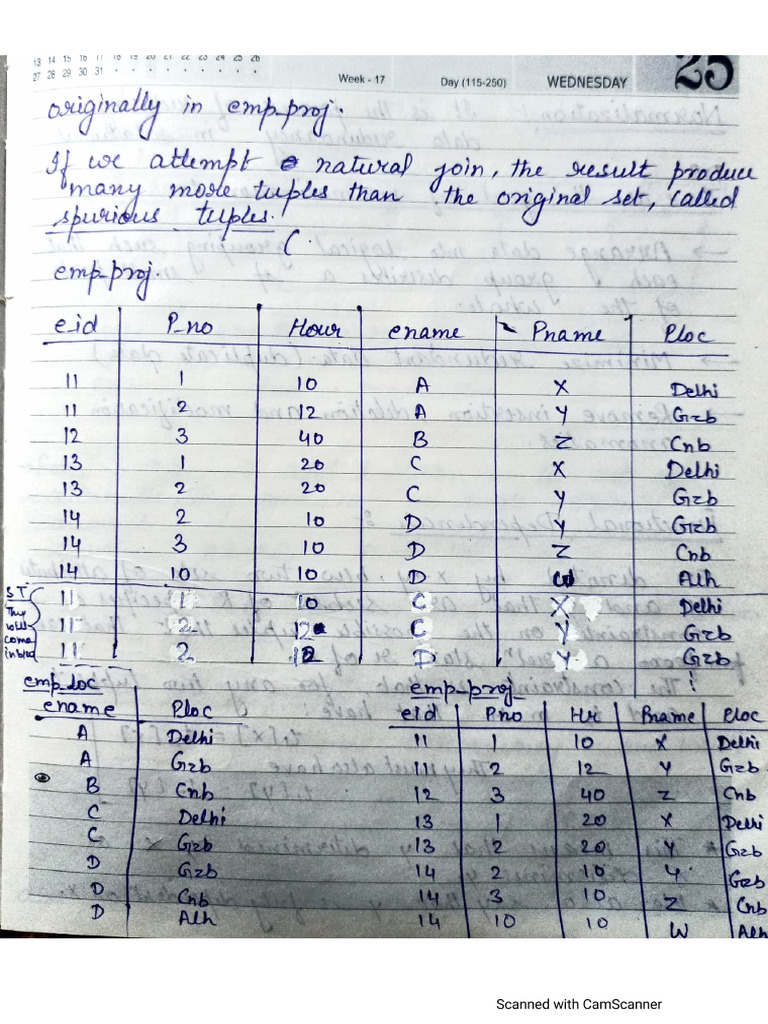 13 14 15 16 17 18 19 20 21 22 23 24 25 26
27 28 29 30 31
Week - 17 Day (115-250) WEDNESDAY 25
originally in emp_proj.
If we attempt natural join, the result produce
many more tuples than the original set, called
spurious tuples.
emp_proj.
e_id P_no Hour ename Pname Ploc
11 1 10 A X Delhi
11 2 12 A Y Gzb
12 3 40 B Z Cnb
13 1 20 C X Delhi
13 2 20 C Y Gzb
14 2 10 D Y Gzb
14 3 10 D Z Cnb
14 10 10 D W Alh
ST 11 1 10 C X Delhi
Thy will 11 2 12 C Y Gzb
come in bred 11 2 12 D Y Gzb
emp_loc
ename Ploc
A Delhi
A Gzb
B Cnb
C Delhi
C Gzb
D Gzb
D Cnb
D Alh
emp_proj
eid P.no Hr Pname Ploc
11 1 10 X Delhi
11 2 12 Y Gzb
12 3 40 Z Cnb
13 1 20 X Delhi
13 2 20 Y Gzb
14 2 10 Y Gzb
14 3 10 Z Cnb
14 10 10 W Alh
Scanned with CamScanner